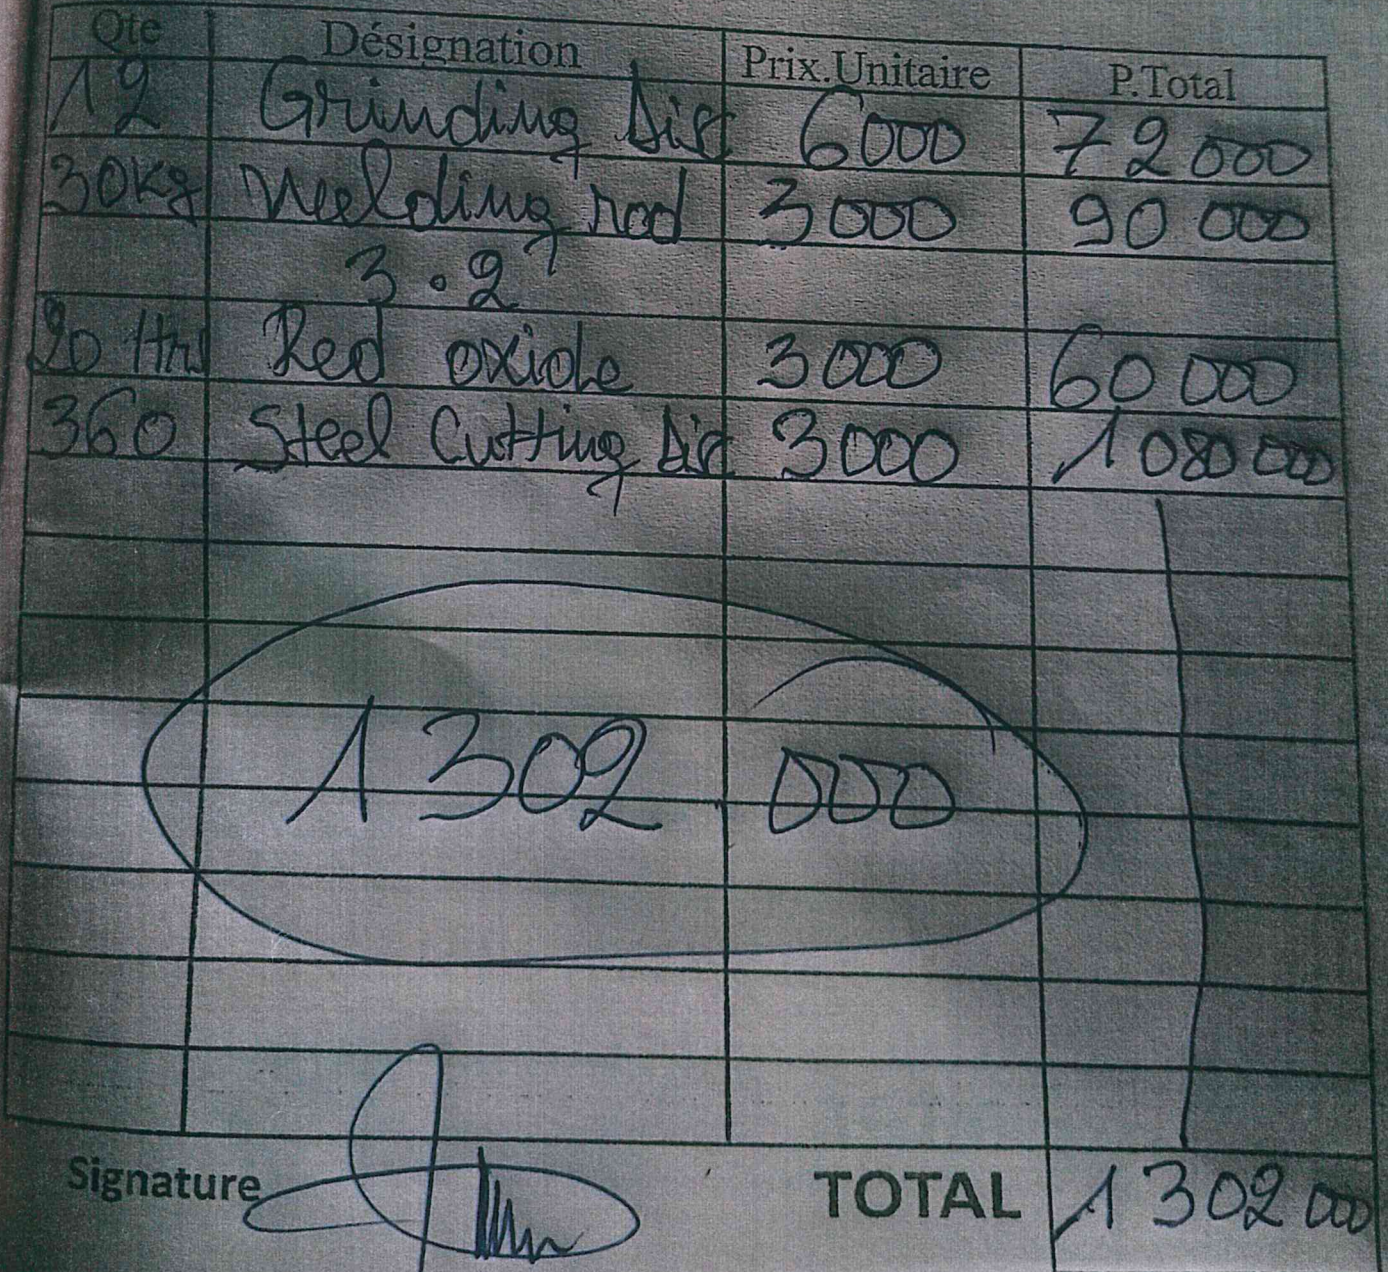 Qte Désignation Prix.Unitaire P.Total
12 Grinding Disc 6000 72 000
30Kg Welding rod 3000 90 000
3.2
20 ltrs Red oxide 3000 60 000
360 Steel Cutting Disc 3000 1 080 000
1 302 000
Signature TOTAL 1 302 000